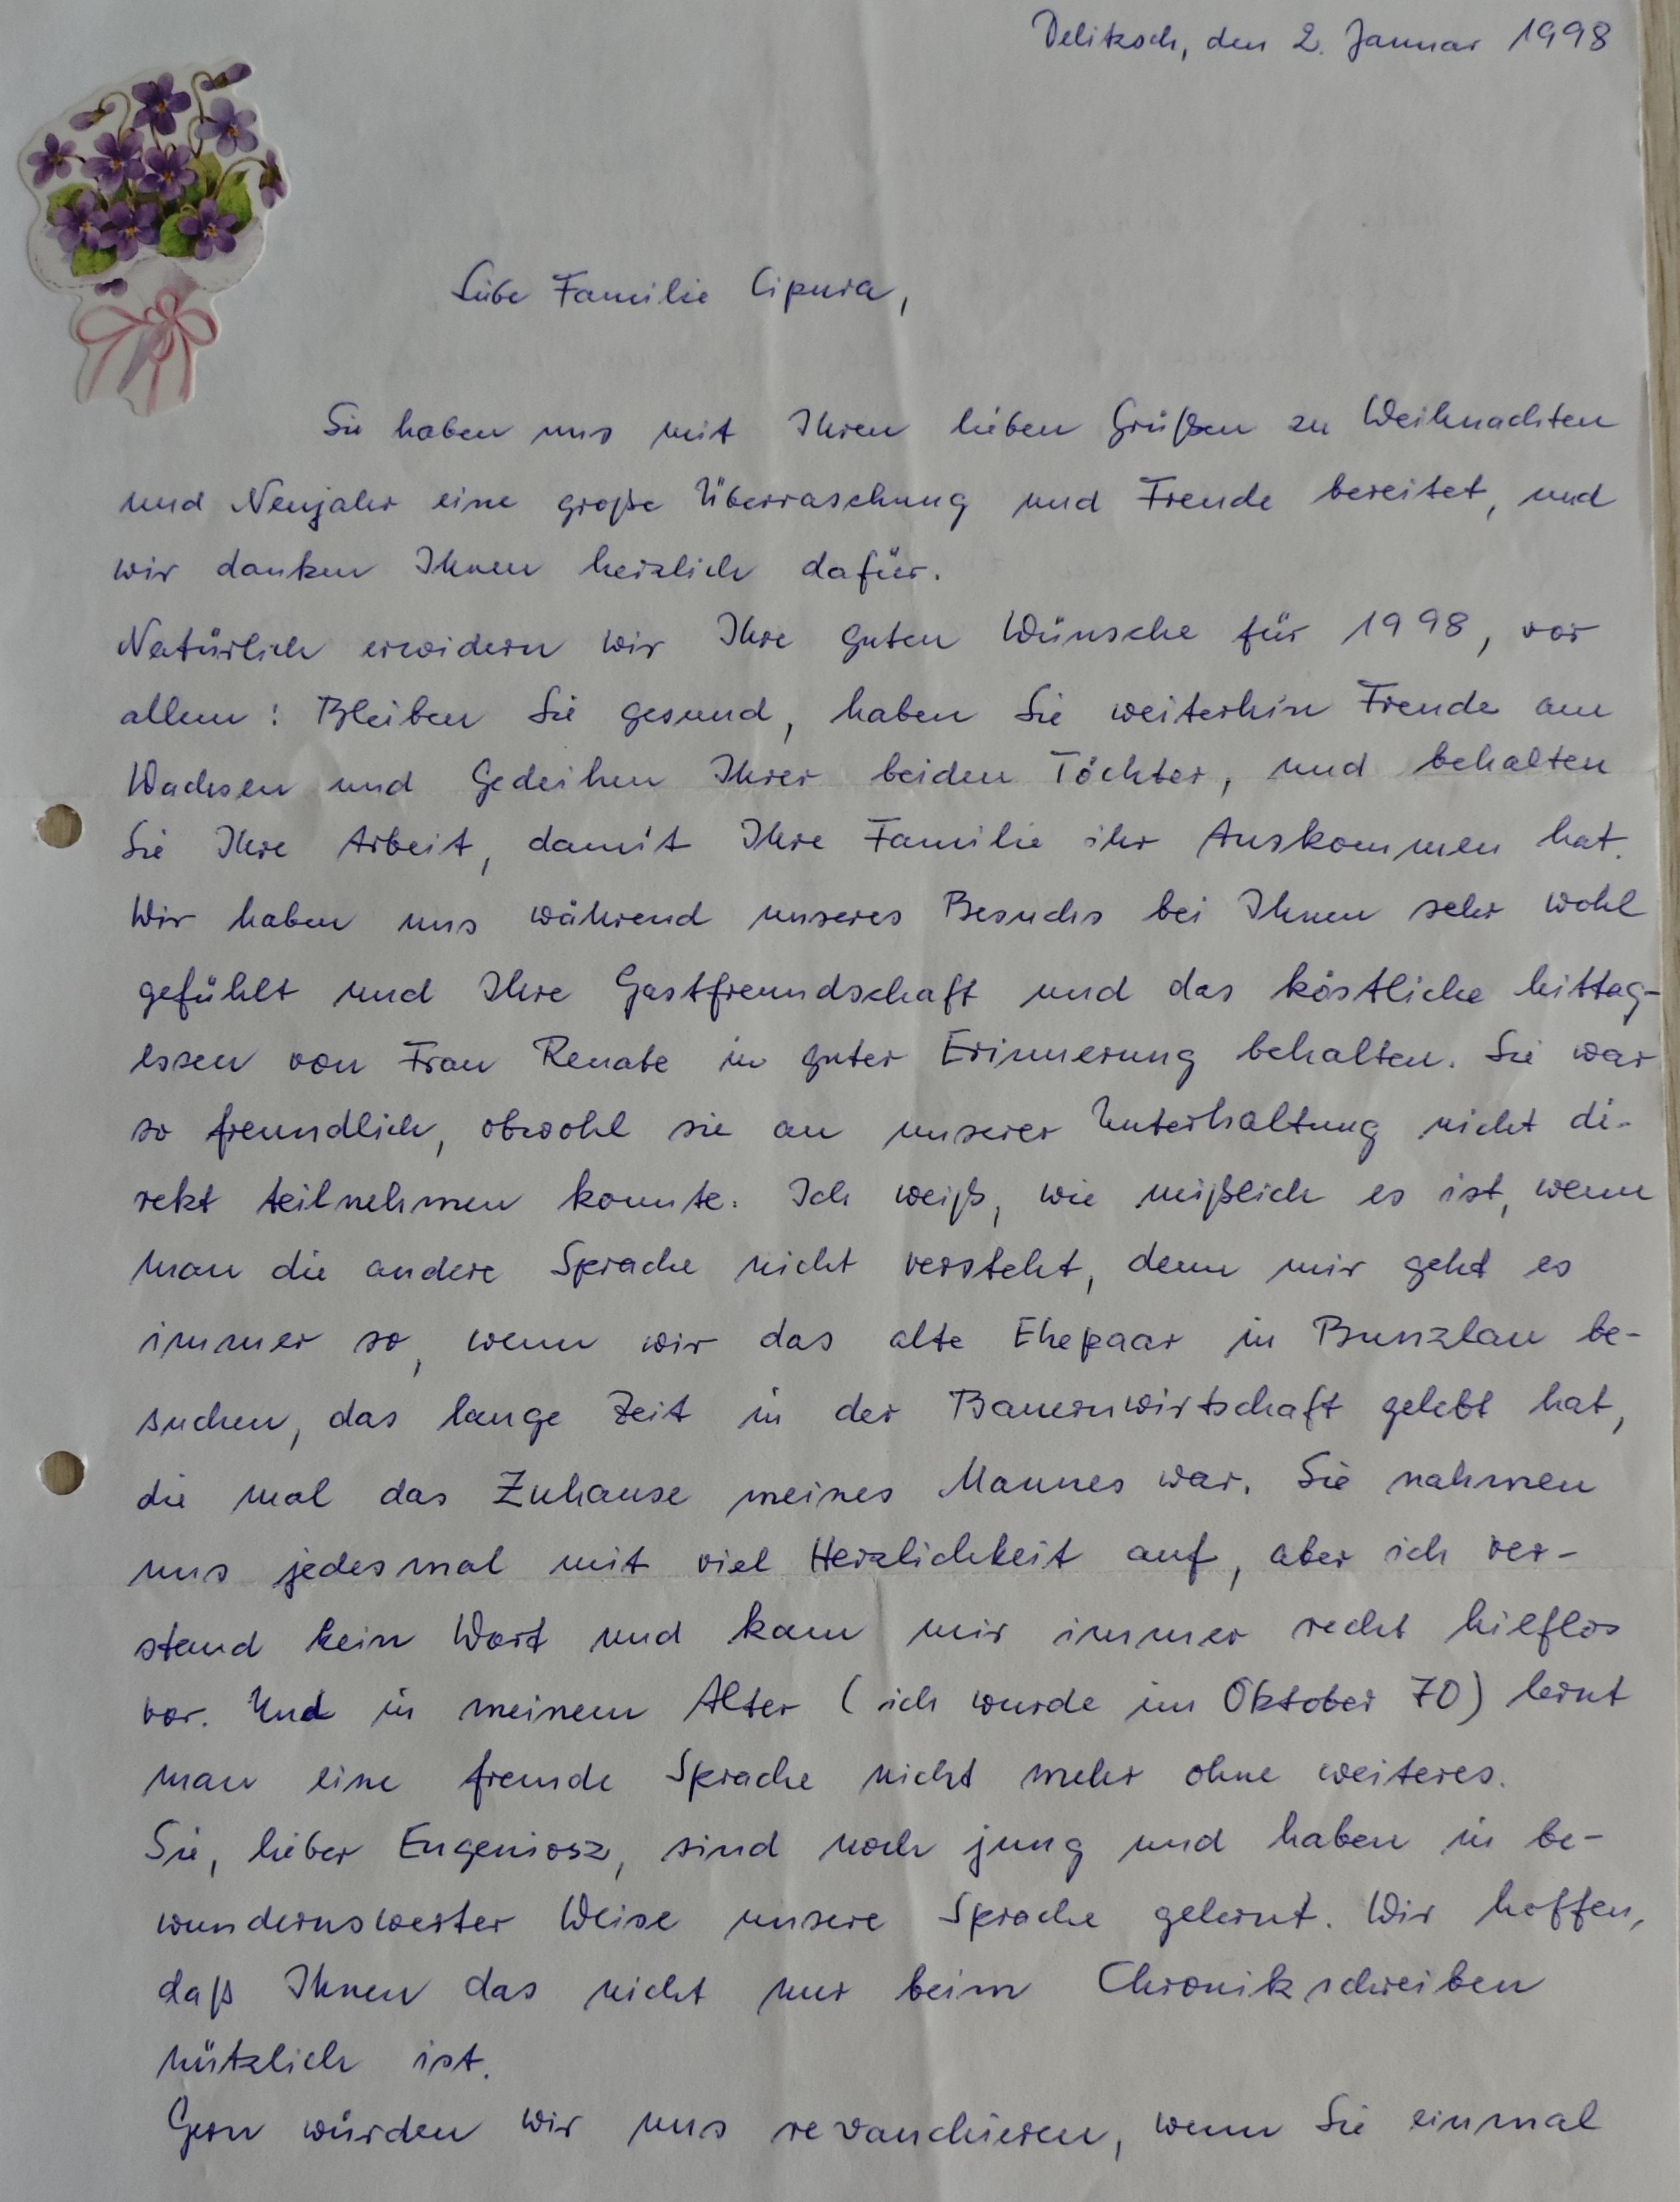 Delitzsch, den 2. Januar 1998
Liebe Familie Cipura,
Sie haben uns mit Ihren lieben Grüßen zu Weihnachten
und Neujahr eine große Überraschung und Freude bereitet, und
wir danken Ihnen herzlich dafür.
Natürlich erwidern wir Ihre guten Wünsche für 1998, vor
allem: Bleiben Sie gesund, haben Sie weiterhin Freude am
Wachsen und Gedeihen Ihrer beiden Töchter, und behalten
Sie Ihre Arbeit, damit Ihre Familie ihr Auskommen hat.
Wir haben uns während unseres Besuchs bei Ihnen sehr wohl
gefühlt und Ihre Gastfreundschaft und das köstliche Mittag-
essen von Frau Renate in guter Erinnerung behalten. Sie war
so freundlich, obwohl sie an unserer Unterhaltung nicht di-
rekt teilnehmen konnte. Ich weiß, wie mißlich es ist, wenn
man die andere Sprache nicht versteht, denn mir geht es
immer so, wenn wir das alte Ehepaar in Bunzlau be-
suchen, das lange Zeit in der Bauernwirtschaft gelebt hat,
die mal das Zuhause meines Mannes war. Sie nahmen
uns jedesmal mit viel Herzlichkeit auf, aber ich ver-
stand kein Wort und kam mir immer recht hilflos
vor. Und in meinem Alter (ich wurde im Oktober 70) lernt
man eine fremde Sprache nicht mehr ohne weiteres.
Sie, lieber Eugeniosz, sind noch jung und haben in be-
wundernswerter Weise unsere Sprache gelernt. Wir hoffen,
daß Ihnen das nicht nur beim Chronikschreiben
nützlich ist.
Gern würden wir uns revanchieren, wenn Sie einmal